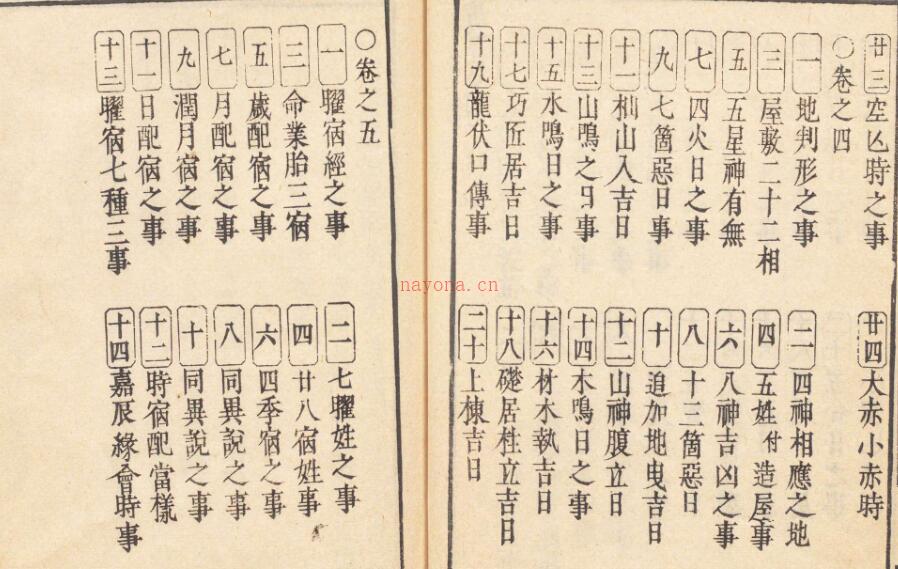 廿三 空亾時之事
廿四 大赤小赤時
○卷之四
一 地判形之事
二 四神相應之地
三 屋敷二十二相
四 五姓附造屋事
五 五星神有無
六 八神吉凶之事
七 四火日之事
八 十三箇惡日
九 七箇惡日事
十 追加地曳吉日
十一 杣山入吉日
十二 山神腹立日
十三 山鳴之日事
十四 木鳴日之事
十五 水鳴日之事
十六 材木執吉日
十七 巧匠居吉日
十八 礎居柱立吉日
十九 龍伏口傳事
二十 上棟吉日
○卷之五
一 曜宿經之事
二 七曜姓之事
三 命業胎三宿
四 廿八宿姓事
五 歲配宿之事
六 四季宿之事
七 月配宿之事
八 同異說之事
九 潤月宿之事
十 同異說之事
十一 日配宿之事
十二 時宿配當樣
十三 曜宿七種三事
十四 嘉辰緣會時事
nayona.cn